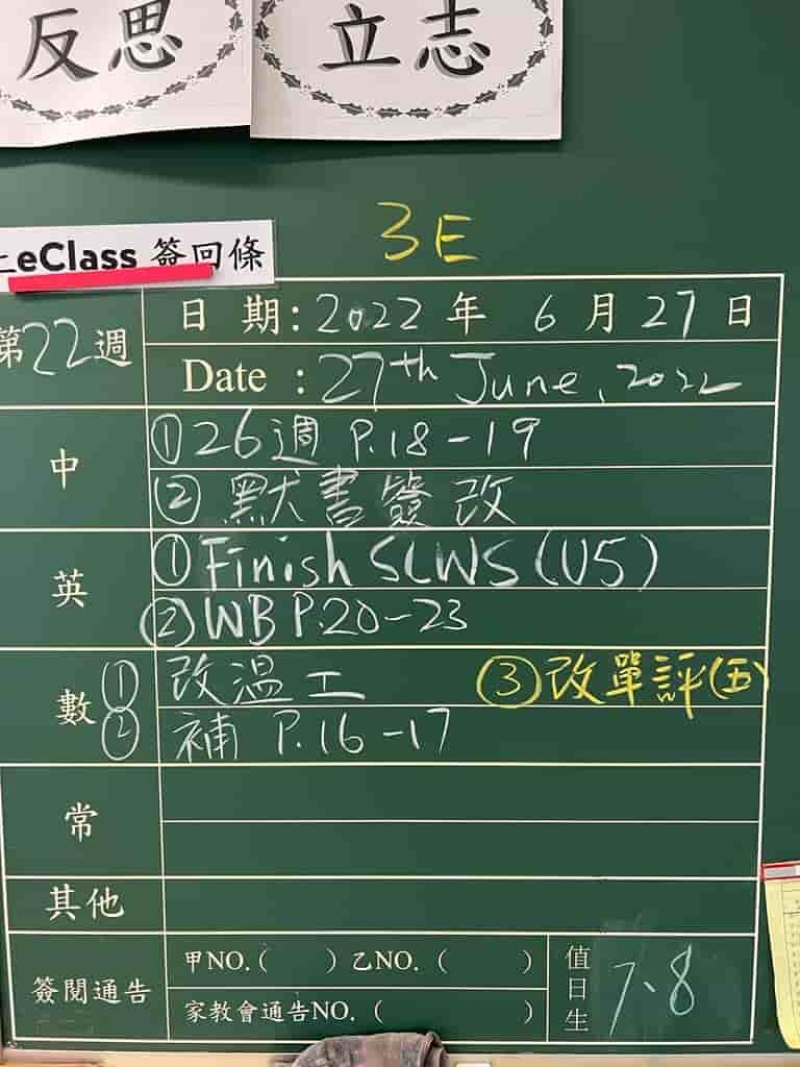 反思 立志
3E
上eClass 簽回條
第22週
日 期:2022 年 6 月 27 日
Date : 27th June, 2022
中
①26週 P.18-19
②默書簽改
英
①Finish SLWS (U5)
②WB P.20-23
數
①改溫工 ③改單評(五)
②補 P.16-17
常
其他
簽閱通告
甲NO.( )乙NO.( )
家教會通告NO.( )
值日生 7、8